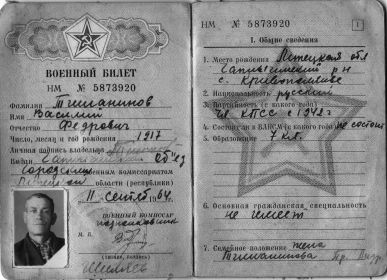 ВОЕННЫЙ БИЛЕТ
НМ № 5873920
Фамилия Тишанинов
Имя Василий
Отчество Федрович
Число, месяц и год рождения 1917
Личная подпись владельца
Выдан
Городским военным комиссариатом
области (республики)
11 сент 64 г.
ВОЕННЫЙ КОМИССАР
подполковник
М. П.
(звание, подпись)
НМ № 5873920
1
I. Общие сведения
1. Место рождения Липецкая обл
Чаплыгинский р-н
с. Кривополянье
2. Национальность русский
3. Партийность (с какого года)
чл КПСС с 1942 г
4. Состоит ли в ВЛКСМ (с какого года) не состоит
5. Образование 7 кл.
6. Основная гражданская специальность
не имеет
7. Семейное положение жена
Тишанинова